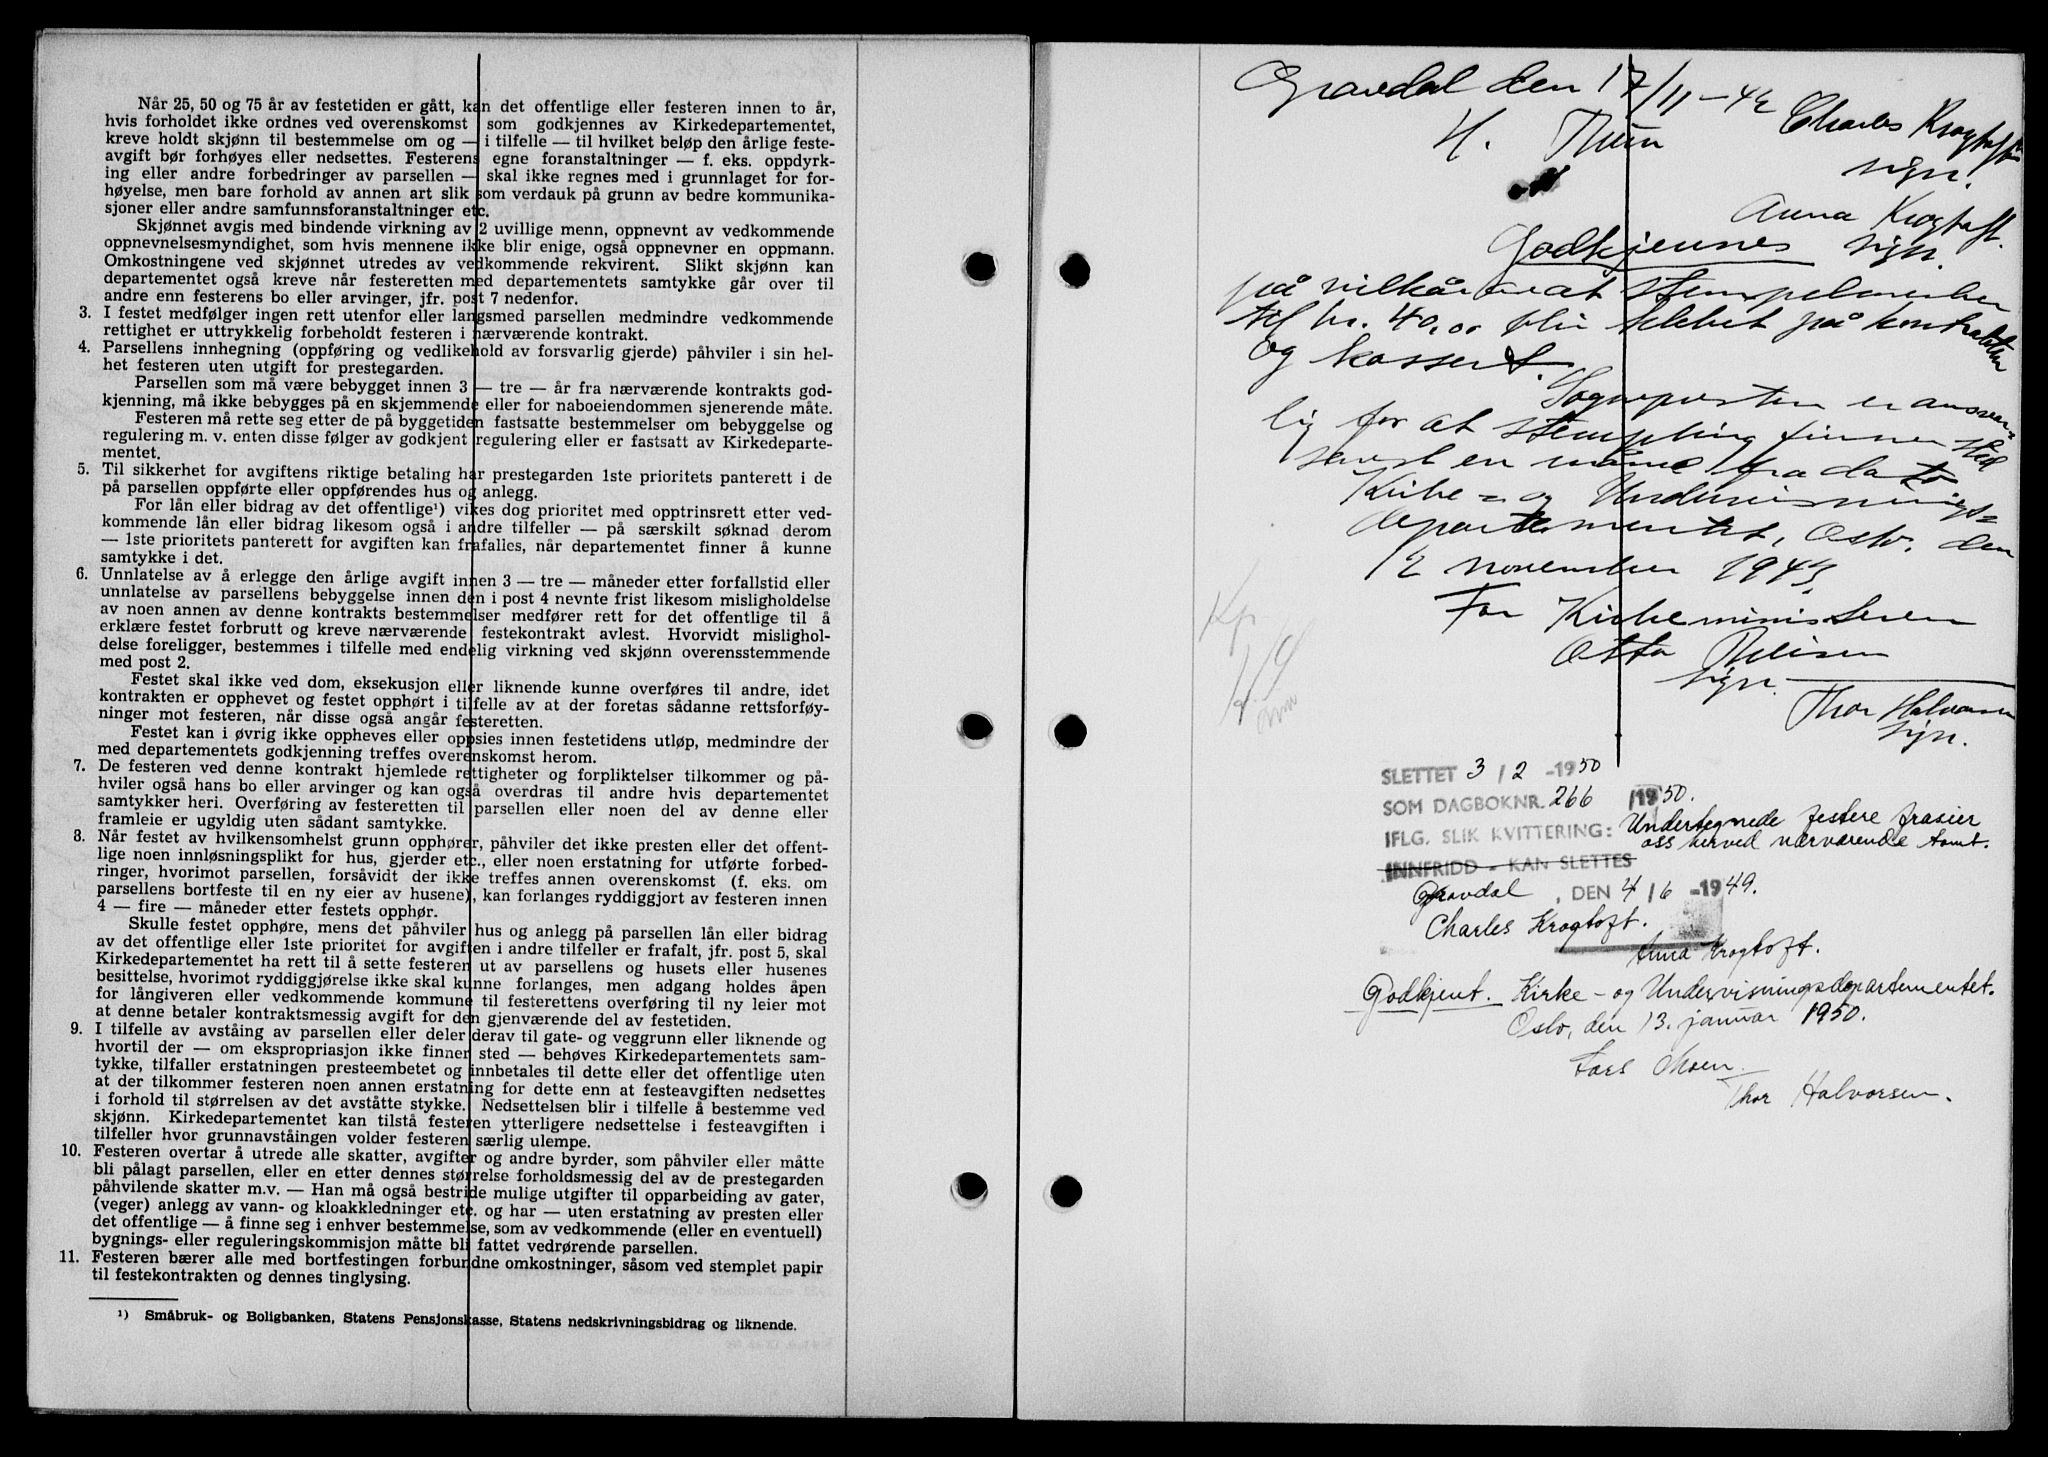 Når 25, 50 og 75 år av festetiden er gått, kan det offentlige eller festeren innen to år,
hvis forholdet ikke ordnes ved overenskomst som godkjennes av Kirkedepartementet,
kreve holdt skjønn til bestemmelse om og — i tilfelle — til hvilket beløp den årlige feste-
avgift bør forhøyes eller nedsettes. Festerens egne foranstaltninger — f. eks. oppdyrk-
ing eller andre forbedringer av parsellen — skal ikke regnes med i grunnlaget for for-
høyelse, men bare forhold av annen art slik som verdauk på grunn av bedre kommunika-
sjoner eller andre samfunnsforanstaltninger etc.
Skjønnet avgis med bindende virkning av 2 uvillige menn, oppnevnt av vedkommende
oppnevnelsesmyndighet, som hvis mennene ikke blir enige, også oppnevner en oppmann.
Omkostningene ved skjønnet utredes av vedkommende rekvirent. Slikt skjønn kan
departementet også kreve når festeretten med departementets samtykke går over til
andre enn festerens bo eller arvinger, jfr. post 7 nedenfor.
3. I festet medfølger ingen rett utenfor eller langsmed parsellen medmindre vedkommende
rettighet er uttrykkelig forbeholdt festeren i nærværende kontrakt.
4. Parsellens innhegning (oppføring og vedlikehold av forsvarlig gjerde) påhviler i sin hel-
het festeren uten utgift for prestegarden.
Parsellen som må være bebygget innen 3 — tre — år fra nærværende kontrakts god-
kjenning, må ikke bebygges på en skjemmende eller for naboeiendommen sjenerende måte.
Festeren må rette seg etter de på byggetiden fastsatte bestemmelser om bebyggelse og
regulering m. v. enten disse følger av godkjent regulering eller er fastsatt av Kirkedeparte-
mentet.
5. Til sikkerhet for avgiftens riktige betaling har prestegarden 1ste prioritets panterett i de
på parsellen oppførte eller oppførendes hus og anlegg.
For lån eller bidrag av det offentlige¹) vikes dog prioritet med opptrinsrett etter ved-
kommende lån eller bidrag likesom også i andre tilfeller — på særskilt søknad derom
— 1ste prioritets panterett for avgiften kan frafalles, når departementet finner å kunne
samtykke i det.
6. Unnlatelse av å erlegge den årlige avgift innen 3 — tre — måneder etter forfallstid eller
unnlatelse av parsellens bebyggelse innen den i post 4 nevnte frist likesom misligholdelse
av noen annen av denne kontrakts bestemmelser medfører rett for det offentlige til å
erklære festet forbrutt og kreve nærværende festekontrakt avlest. Hvorvidt misslighol-
delse foreligger, bestemmes i tilfelle med endelig virkning ved skjønn overensstemmende
med post 2.
Festet skal ikke ved dom, eksekusjon eller liknende kunne overføres til andre, idet
kontrakten er opphevet og festet opphørt i tilfelle av at der foretas sådanne rettsforføy-
ninger mot festeren, når disse også angår festeretten.
Festet kan i øvrig ikke oppheves eller oppsies innen festetidens utløp, medmindre der
med departementets godkjenning treffes overenskomst herom.
7. De festeren ved denne kontrakt hjemlede rettigheter og forpliktelser tilkommer og på-
hviler også hans bo eller arvinger og kan også overdras til andre hvis departementet
samtykker heri. Overføring av festeretten til parsellen eller noen del av denne eller
framleie er ugyldig uten sådant samtykke.
8. Når festet av hvilkensomhelst grunn opphører, påhviler det ikke presten eller det offent-
lige noen innløsningsplikt for hus, gjerder etc., eller noen erstatning for utførte forbed-
ringer, hvorimot parsellen, forsåvidt der ikke treffes annen overenskomst (f. eks. om
parsellens bortfeste til en ny eier av husene), kan forlanges ryddiggjort av festeren innen
4 — fire — måneder etter festets opphør.
Skulle festet opphøre, mens det påhviler hus og anlegg på parsellen lån eller bidrag
av det offentlige eller 1ste prioritet for avgiften i andre tilfeller er frafalt, jfr. post 5, skal
Kirkedepartementet ha rett til å sette festeren ut av parsellens og husets eller husenes
besittelse, hvorimot ryddiggjørelse ikke skal kunne forlanges, men adgang holdes åpen
for långiveren eller vedkommende kommune til festerettens overføring til ny leier mot
at denne betaler kontraktsmessig avgift for den gjenværende del av festetiden.
9. I tilfelle av avståing av parsellen eller deler derav til gate- og veggrunn eller liknende og
hvortil der — om ekspropriasjon ikke finner sted — behøves Kirkedepartementets sam-
tykke, tilfaller erstatningen presteembetet og innbetales til dette eller det offentlige uten
at der tilkommer festeren noen annen erstatning for dette enn at festeavgiften nedsettes
i forhold til størrelsen av det avståtte stykke. Nedsettelsen blir i tilfelle å bestemme ved
skjønn. Kirkedepartementet kan tilstå festeren ytterligere nedsettelse i festeavgiften i
tilfeller hvor grunnavståingen volder festeren særlig ulempe.
10. Festeren overtar å utrede alle skatter, avgifter og andre byrder, som påhviler eller måtte
bli pålagt parsellen, eller en etter dennes størrelse forholdsmessig del av de prestegarden
påhvilende skatter m.v. — Han må også bestride mulige utgifter til opparbeiding av gater,
(veger) anlegg av vann- og kloakkledninger etc. og har — uten erstatning av presten eller
det offentlige — å finne seg i enhver bestemmelse, som av vedkommende (eller en eventuell)
bygnings- eller reguleringskommisjon måtte bli fattet vedrørende parsellen.
11. Festeren bærer alle med bortfestingen forbundne omkostninger, såsom ved stemplet papir
til festekontrakten og dennes tinglysing.
¹) Småbruk- og Boligbanken, Statens Pensjonskasse, Statens nedskrivningsbidrag og liknende.
Gravdal den 17/11-42
Charles Krogtoft
sign.
H.
Anna Krogtoft.
sign.
Godkjennes
på vilkår av at stempelmerker
til kr. 40,00 blir klebet på kontrakten
og kassert.
Sognepresten er ansvar=
lig for at stempling finner sted
senest en måned fra dato
Kirke= og Undervisnings=
departementet, Oslo, den
12 november 1943.
For Kirkeministeren
Otto
sign.
Thor Halvorsen
sign.
SLETTET 3/2-1950
SOM DAGBOKNR. 266 /1950.
IFLG. SLIK KVITTERING: Undertegnede festere frasier
oss herved nærværende tomt.
INNFRIDD - KAN SLETTES
Gravdal, DEN 4/6-1949.
Charles Krogtoft.
Anna Krogtoft.
Godkjent. Kirke- og Undervisningsdepartementet.
Oslo, den 13. januar 1950.
Lars Moen.
Thor Halvorsen.